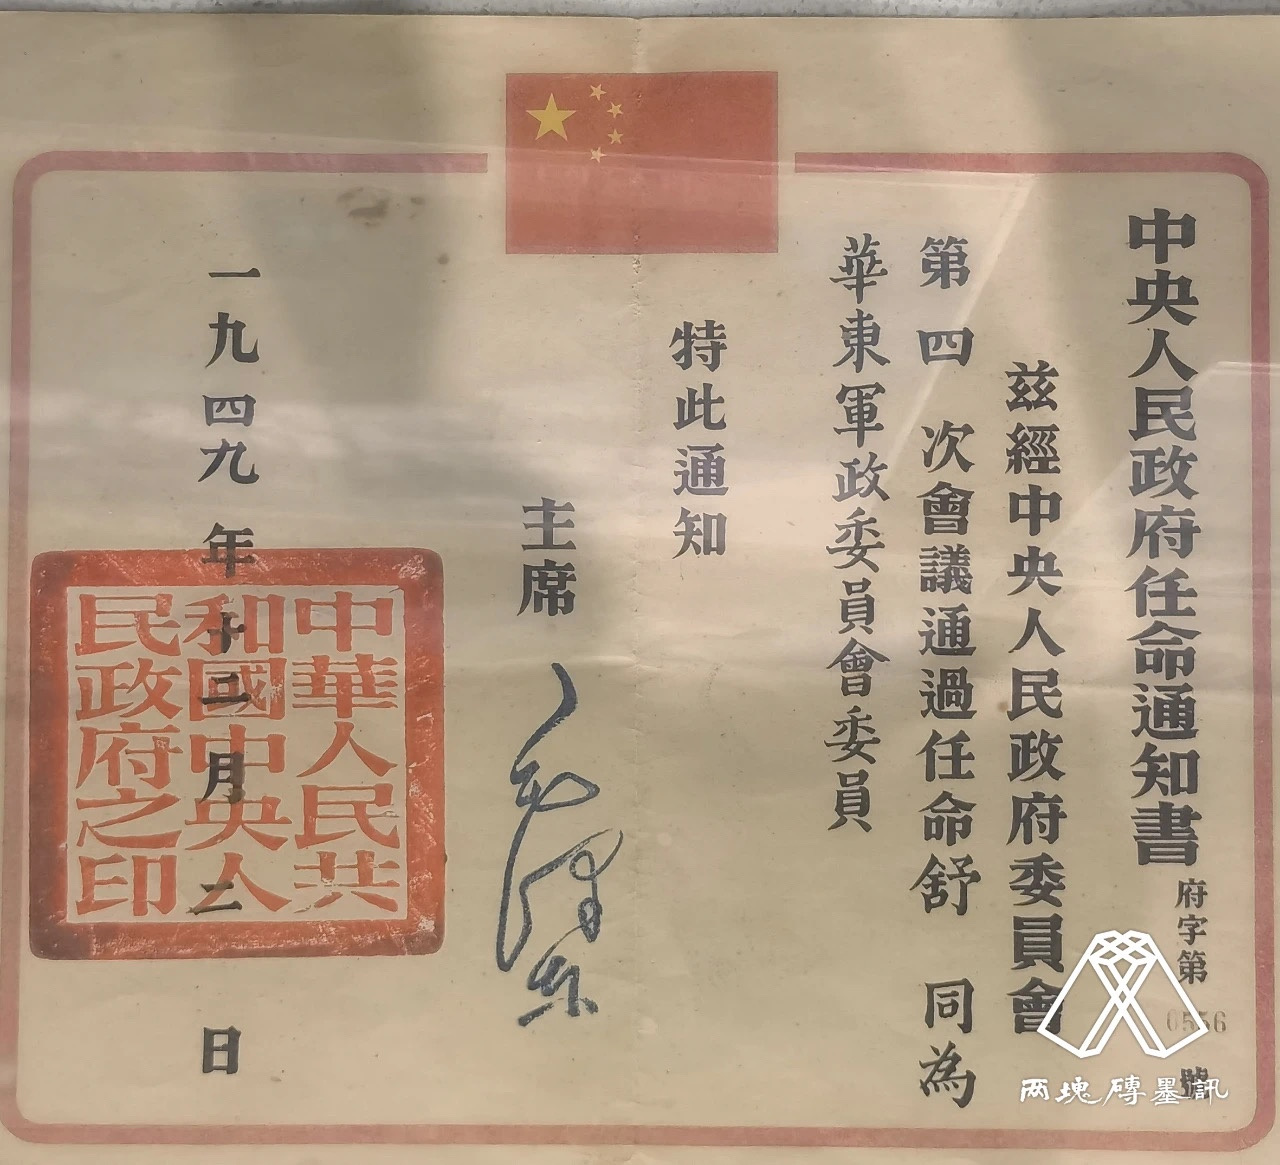 中央人民政府任命通知書
府字第
0556
號
兹經中央人民政府委員會
第四次會議通過任命舒同為
華東軍政委員會委員
特此通知
主席
毛澤东
一九四九年十二月二日
中華人民共
和國中央人
民政府之印
两塊磚墨訊